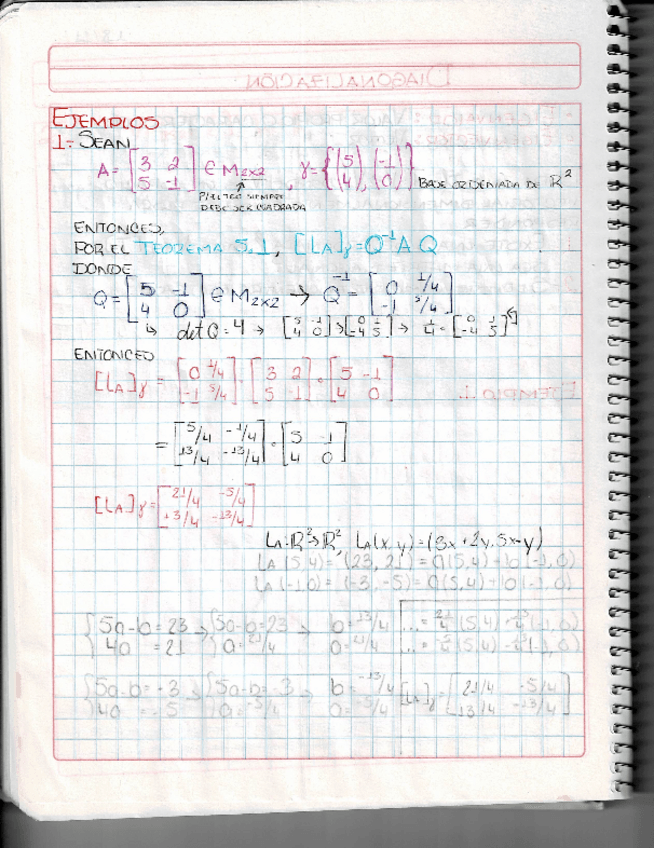 EJEMPLOS
1.- SEAN
A = [3 2; 5 -1] ∈ M2x2 , γ = {(5 4), (-1 0)} BASE ORDENADA DE R²
P/ESTO SIEMPRE
DEBE SER CUADRADA
ENTONCES,
POR EL TEOREMA 5.1, [LA]γ = Q⁻¹AQ
DONDE
Q = [5 -1; 4 0] ∈ M2x2 → Q⁻¹ = [0 1/4; -1 5/4]
↳ det Q = 4 → [5 -1; 4 0] → [0 1; -4 5] → 1/4 · [0 1; -4 5]
ENTONCES
[LA]γ = [0 1/4; -1 5/4] · [3 2; 5 -1] · [5 -1; 4 0]
= [5/4 -1/4; 13/4 -13/4] · [5 -1; 4 0]
[LA]γ = [21/4 -5/4; 13/4 -13/4]
LA: R² → R², LA(x,y) = (3x+2y, 5x-y)
LA(5,4) = (23, 21) = a(5,4) + b(-1,0)
LA(-1,0) = (-3,-5) = a(5,4) + b(-1,0)
{5a-b=23 → {5a-b=23 → b=13/4 ...= 21/4 (5,4) + 13/4 (-1,0)
4a =21 a=21/4 a=21/4 ...= -5/4 (5,4) - 13/4 (-1,0)
{5a-b=-3 → {5a-b=-3 → b=-13/4 [LA]γ = [21/4 -5/4; 13/4 -13/4]
4a =-5 a=-5/4 a=-5/4